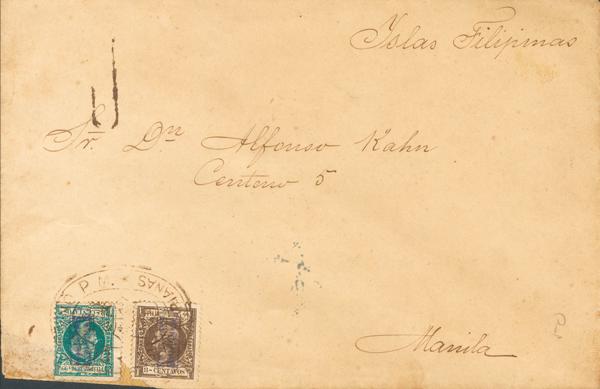 Islas Filipinas
Sr. Dn Alfonso Kahn
Centeno 5
Manila
P. M.
MARIANAS
CENTAVOS